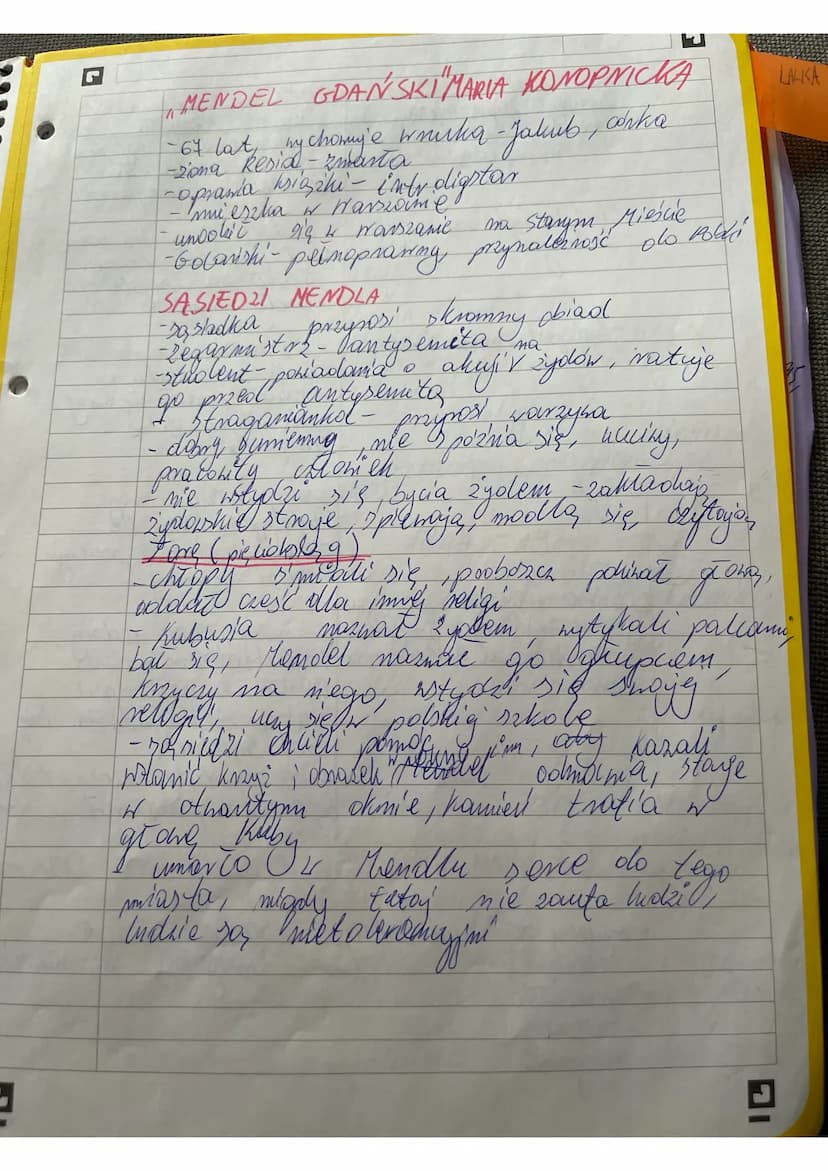 „MENDEL GDAŃSKI" MARIA KONOPNICKA
LALKA
- 67 lat, wychowuje wnuka - Jakub, córka
- żona Resia - zmarła
- oprawia książki - introligator
- mieszka w Warszawie
- urodził się w Warszawie na Starym Mieście
- Gdański - pełnoprawny, przynależność do Polski
SĄSIEDZI MENDLA
- sąsiadka przynosi skromny obiad
- zegarmistrz - antysemita
- student - powiadamia o akcji na żydów, ratuje
go przed antysemitą
- straganiarka - przynosi warzywa
- dobry, sumienny, nie spóźnia się, uczciwy,
pracowity człowiek
- nie wstydzi się bycia żydem - zakładają
żydowskie stroje, śpiewają, modlą się, czytają
Torę (pięcioksiąg)
- chłopy śmiali się, proboszcz pokiwał głową,
oddał cześć dla innej religi
- Kubusia nazwał żydem, wytykali palcami,
bał się, Mendel nazwie go głupcem,
krzyczy na niego, wstydzi się swojej
religii, uczy się w polskiej szkole
- sąsiedzi chcieli pomóc kazali
wstawić krzyż i obrazek odmawia, staje
w otwartym oknie, kamień trafia w
głowę Kuby
- umarło w Mendlu serce do tego
miasta, nigdy tutaj nie zaufa ludzi,
ludzie są nietolerancyjni